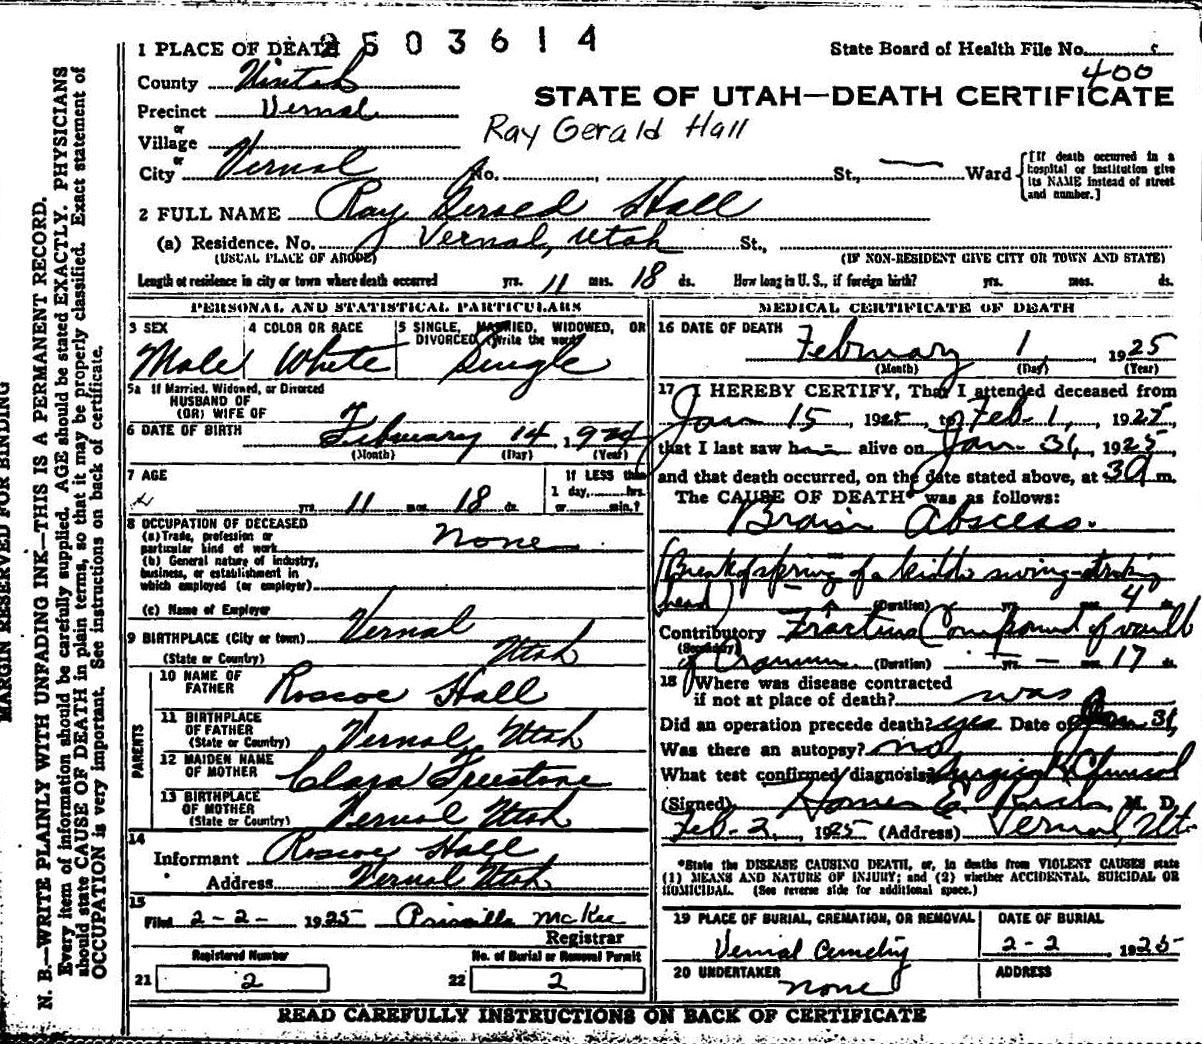 2503614
1 PLACE OF DEATH
State Board of Health File No.
400
County Uintah
Precinct Vernal
STATE OF UTAH—DEATH CERTIFICATE
or
Village
Ray Gerald Hall
or
City Vernal No. , St., Ward
[If death occurred in a hospital or institution give its NAME instead of street and number.]
2 FULL NAME Ray Gerald Hall
(a) Residence. No. Vernal, Utah St.,
(USUAL PLACE OF ABODE) (IF NON-RESIDENT GIVE CITY OR TOWN AND STATE)
Length of residence in city or town where death occurred yrs. 11 mos. 18 ds. How long in U. S., if foreign birth? yrs. mos. ds.
PERSONAL AND STATISTICAL PARTICULARS
3 SEX
Male
4 COLOR OR RACE
White
5 SINGLE, MARRIED, WIDOWED, OR
DIVORCED (Write the word)
Single
5a If Married, Widowed, or Divorced
HUSBAND OF
(OR) WIFE OF
6 DATE OF BIRTH February 14, 1924
(Month) (Day) (Year)
7 AGE
yrs. 11 mos. 18 ds.
If LESS than
1 day, hrs.
or min.?
8 OCCUPATION OF DECEASED
(a) Trade, profession or
particular kind of work None
(b) General nature of industry,
business, or establishment in
which employed (or employer)
(c) Name of Employer
9 BIRTHPLACE (City or town) Vernal
(State or Country) Utah
PARENTS
10 NAME OF
FATHER Roscoe Hall
11 BIRTHPLACE
OF FATHER
(State or Country) Vernal Utah
12 MAIDEN NAME
OF MOTHER Clara Freestone
13 BIRTHPLACE
OF MOTHER
(State or Country) Vernal Utah
14
Informant Roscoe Hall
Address Vernal Utah
15
Filed 2-2- 1925 Priscilla McKee
Registrar
Registered Number
21 2
No. of Burial or Removal Permit
22 2
MEDICAL CERTIFICATE OF DEATH
16 DATE OF DEATH
February 1, 1925
(Month) (Day) (Year)
17 I HEREBY CERTIFY, That I attended deceased from
Jan 15, 1925, to Feb-1, 1925
that I last saw h alive on Jan-31, 1925
and that death occurred, on the date stated above, at m.
The CAUSE OF DEATH* was as follows:
Brain Abscess.
(Break of spring of a kiddie swing-striking
head) (Duration) yrs. mos. 4 ds.
Contributory Fracture (Compound of vault
(Secondary)
of Cranium (Duration) yrs. — mos. 17 ds.
18 Where was disease contracted
if not at place of death? was
Did an operation precede death? yes. Date of Jan 31,
Was there an autopsy? no
What test confirmed diagnosis? Surgical & Clinical
(Signed) Homer E. M. D.
Feb-2, 1925 (Address) Vernal, Ut.
*State the DISEASE CAUSING DEATH, or, in deaths from VIOLENT CAUSES state
(1) MEANS AND NATURE OF INJURY; and (2) whether ACCIDENTAL, SUICIDAL OR
HOMICIDAL. (See reverse side for additional space.)
19 PLACE OF BURIAL, CREMATION, OR REMOVAL
Vernal Cemetry
DATE OF BURIAL
2-2 1925
20 UNDERTAKER
None
ADDRESS
READ CAREFULLY INSTRUCTIONS ON BACK OF CERTIFICATE
MARGIN RESERVED FOR BINDING
N. B.—WRITE PLAINLY WITH UNFADING INK—THIS IS A PERMANENT RECORD.
Every item of information should be carefully supplied. AGE should be stated EXACTLY. PHYSICIANS
should state CAUSE OF DEATH in plain terms, so that it may be properly classified. Exact statement of
OCCUPATION is very important. See instructions on back of certificate.